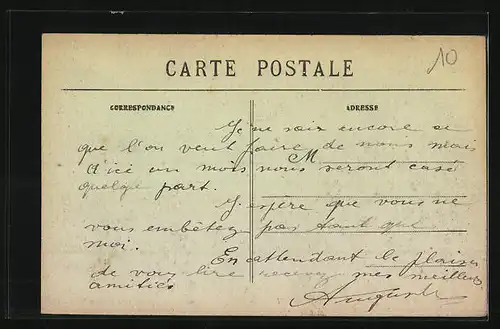 10
CARTE POSTALE
CORRESPONDANCE
ADRESSE
Je ne sais encore ce
que l'on veut faire de nous mais
M
d'ici un mois nous seront casé
quelqe part.
J'espère que vous ne
vous embêtez pas tant que
moi.
En attendant le plaisir
de vous lire recevez mes meilleurs
amitiés
Auguste